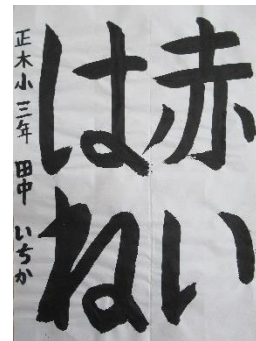 赤い
はね
正木小 三年 田中 いちか